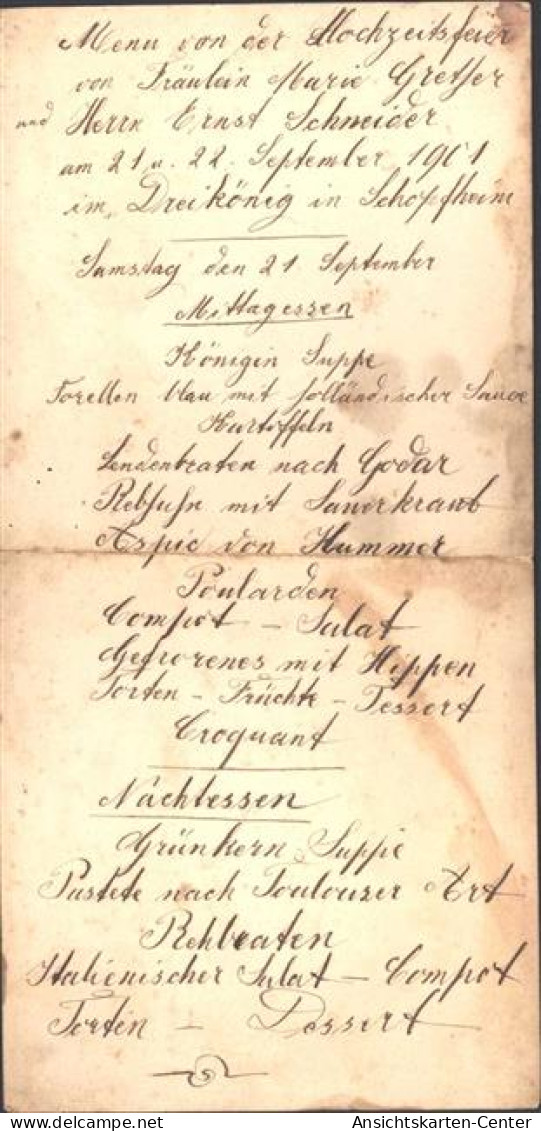 Menu von der Hochzeitsfeier
von Fräulein Marie Grether
und Herrn Ernst Schneider
am 21 u. 22. September 1901
im Dreikönig in Schopfheim
Samstag den 21. September
Mittagessen
Königin Suppe
Forellen blau mit holländischer Sauce
Kartoffeln
Lendenbraten nach Godar
Rebhuhn mit Sauerkraut
Aspic von Hummer
Poularden
Compot – Salat
Gefrorenes mit Hippen
Torten – Früchte – Dessert
Croquant
Nachtessen
Grünkern Suppe
Pastete nach Toulouser Art
Rehbraten
Italienischer Salat – Compot
Torten – Dessert
Ansichtskarten-Center